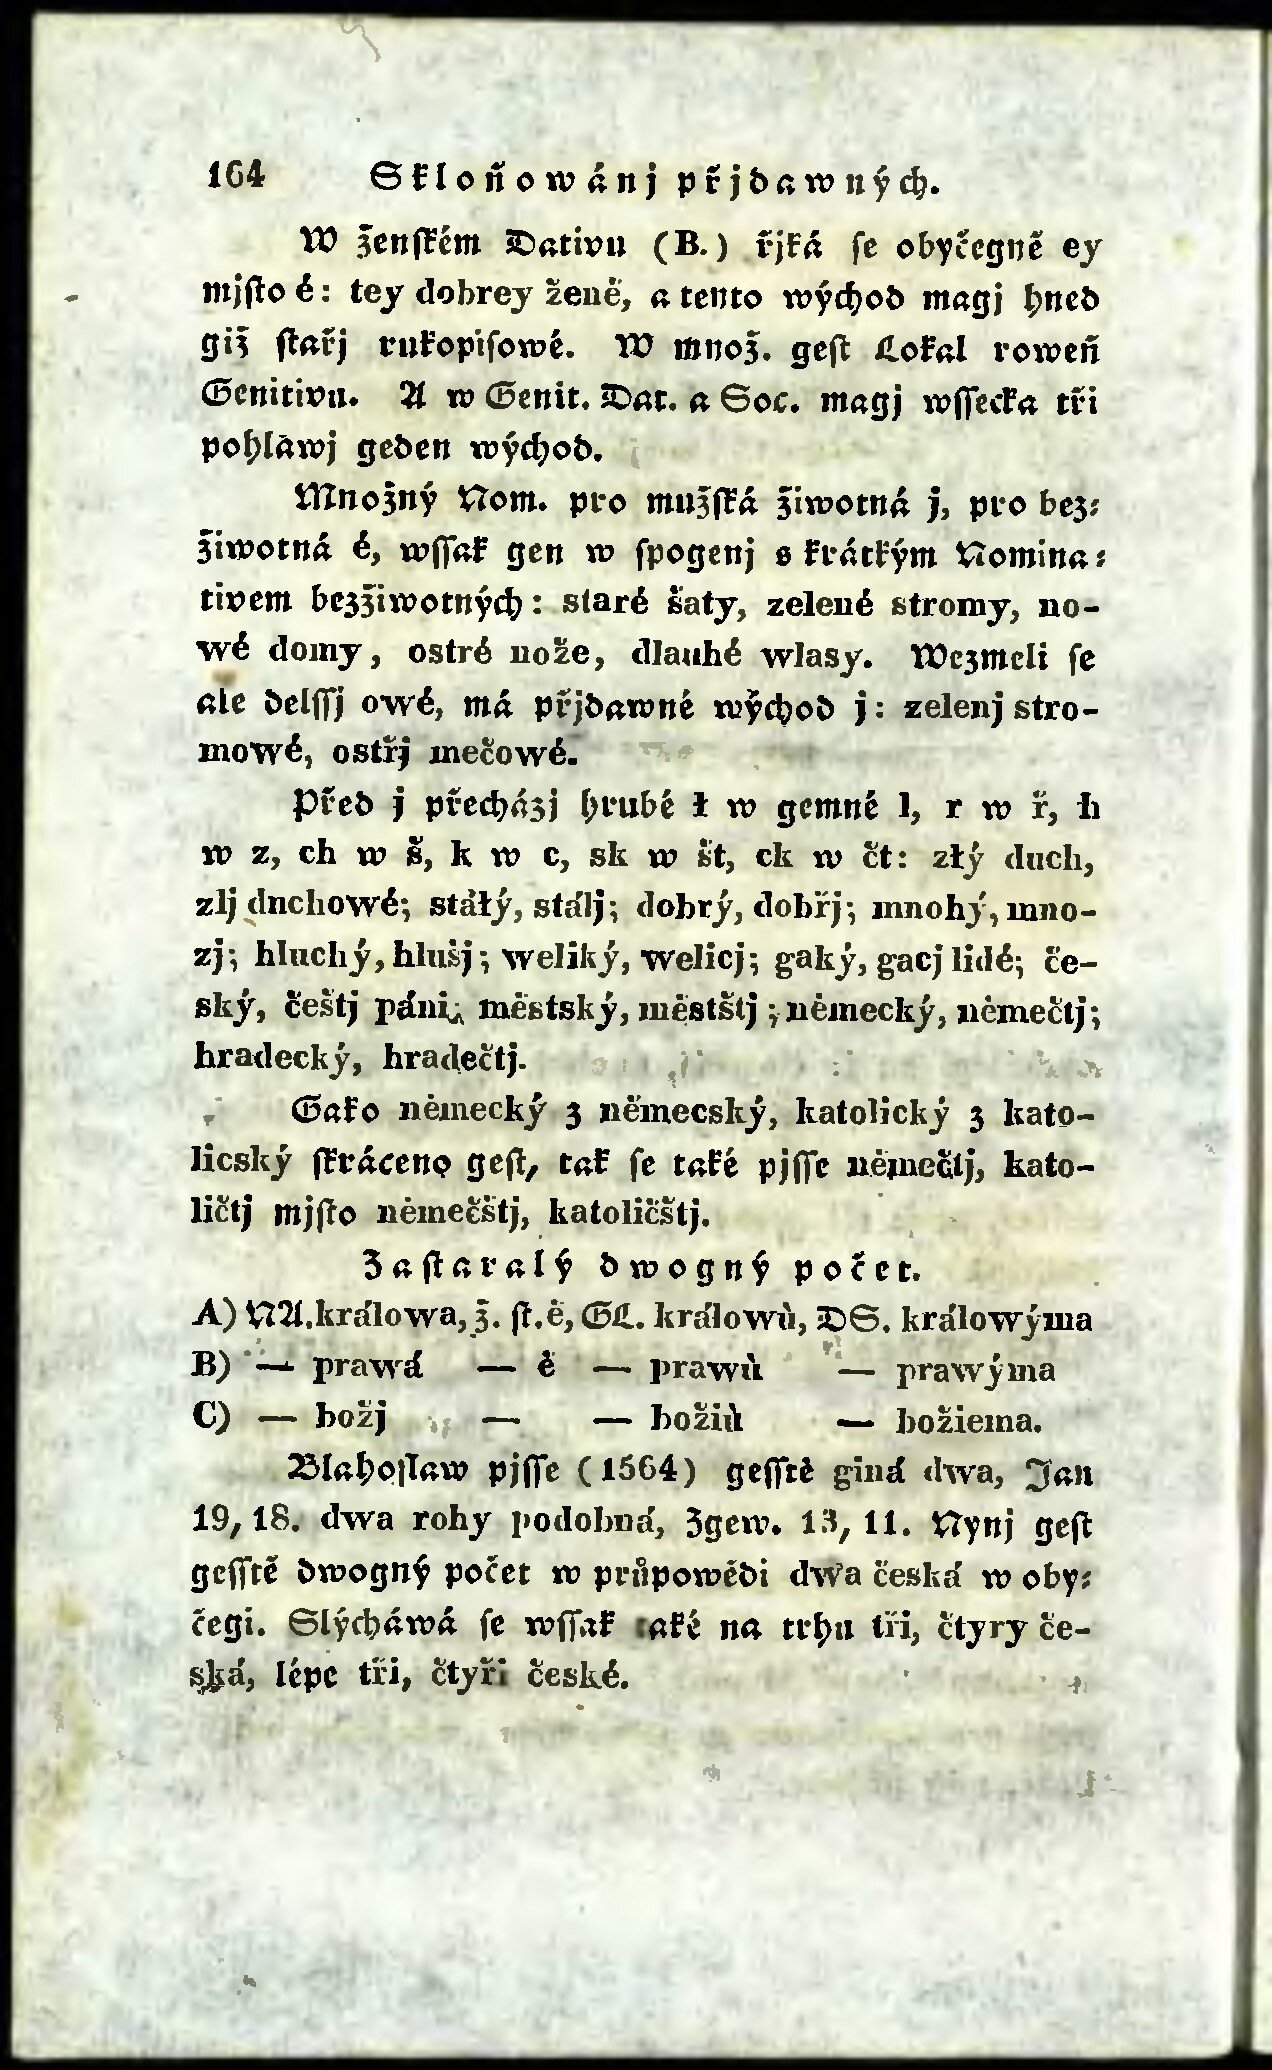 164 Skloňowánj přjdawných.
W ženſkém Dativu (B.) řjká ſe obyčegně ey
mjſto é: tey dobrey ženě, a tento wýchod magj hned
giž ſtařj rukopiſowé. W množ. geſt Lokal roweň
Genitivu. A w Genit. Dat. a Soc. magj wſſecka tři
pohlawj geden wýchod.
Množný Nom. pro mužſká žiwotná j, pro bez⸗
žiwotná é, wſſak gen w ſpogenj s krátkým Nomina⸗
tivem bezžiwotných: staré šaty, zelené stromy, no-
wé domy, ostré nože, dlauhé wlasy. Wezmeli ſe
ale delſſj owé, má přjdawné wýchod j: zelenj stro-
mowé, ostřj mečowé.
Před j přecházj hrubé ł w gemné l, r w ř, h
w z, ch w š, k w c, sk w št, ck w čt: złý duch,
zlj duchowé; stáłý, stálj; dobrý, dobřj; mnohý, mno-
zj; hluchý, hlušj; weliký, welicj; gaký, gacj lidé; če-
ský, češtj páni; městský, městštj; německý, němečtj;
hradecký, hradečtj.
Gako německý z němecský, katolický z kato-
licský ſkráceno geſt, tak ſe také pjſſe němečtj, kato-
ličtj mjſto němečštj, katoličštj.
Zaſtaralý dwogný počet.
A) NA. králowa, ž. ſt. ě, GL. králowů, DS. králowýma
B) — prawá — ě — prawů — prawýma
C) — božj — — božiů — božiema.
Blahoſlaw pjſſe (1564) geſſtě giná dwa, Jan
19, 18. dwa rohy podobná, Zgew. 13, 11. Nynj geſt
geſſtě dwogný počet w průpowědi dwa česká w oby⸗
čegi. Slýcháwá ſe wſſak také na trhu tři, čtyry če-
ská, lépe tři, čtyři české.